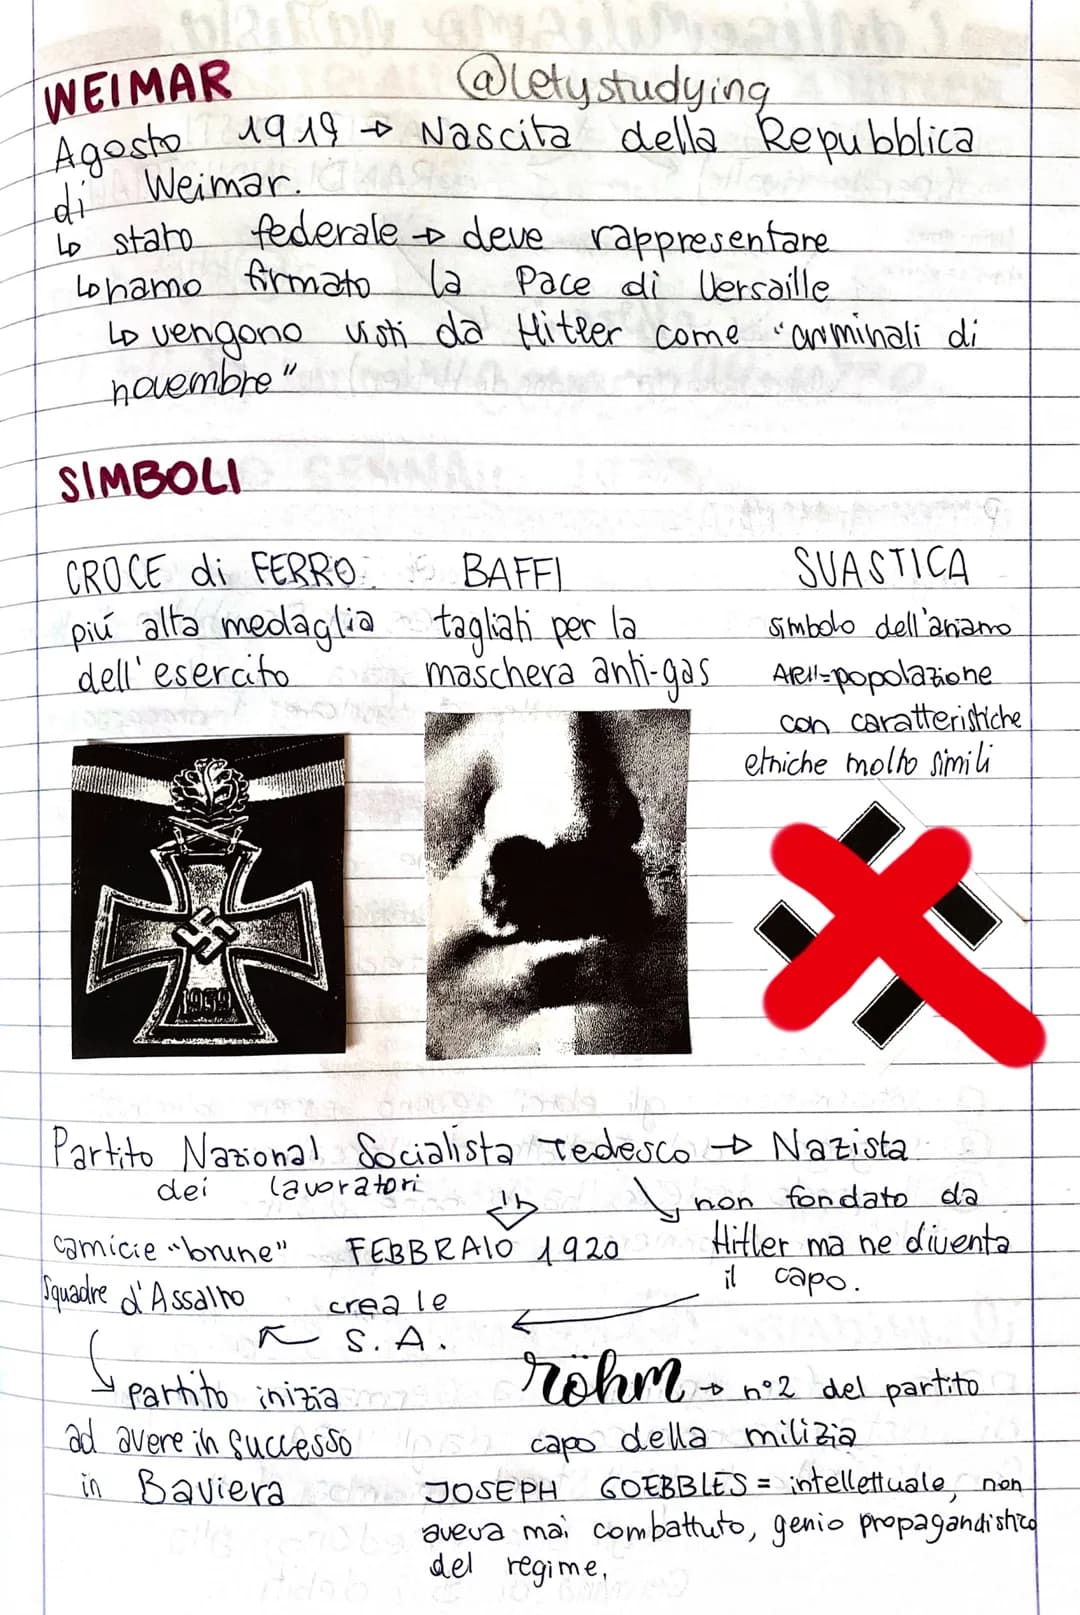 WEIMAR
@letystudying
Agosto 1919 → Nascita della Repubblica
di Weimar.
↳ stato federale → deve rappresentare
↳ hamo firmato la Pace di Versaille
↳ vengono visti da Hitler come "criminali di
novembre"
SIMBOLI
CROCE di FERRO
più alta medaglia
dell'esercito
BAFFI
tagliati per la
maschera anti-gas
SUASTICA
simbolo dell'ariamo
ARII=popolazione
con caratteristiche
etniche molto simili
1939
Partito Nazional Socialista Tedesco → Nazista
dei lavoratori
non fondato da
Hitler ma ne diventa
il capo.
FEBBRAIO 1920
crea le
S.A.
camicie "brune"
Squadre d'Assalto
partito inizia
ad avere in successo
in Baviera
röhm → n°2 del partito
capo della milizia
JOSEPH GOEBBLES = intellettuale, non
aveva mai combattuto, genio propagandistico
del regime,